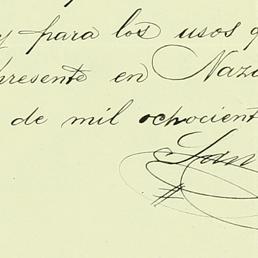 y para los usos q
presente en Naza
de mil ochocient
San